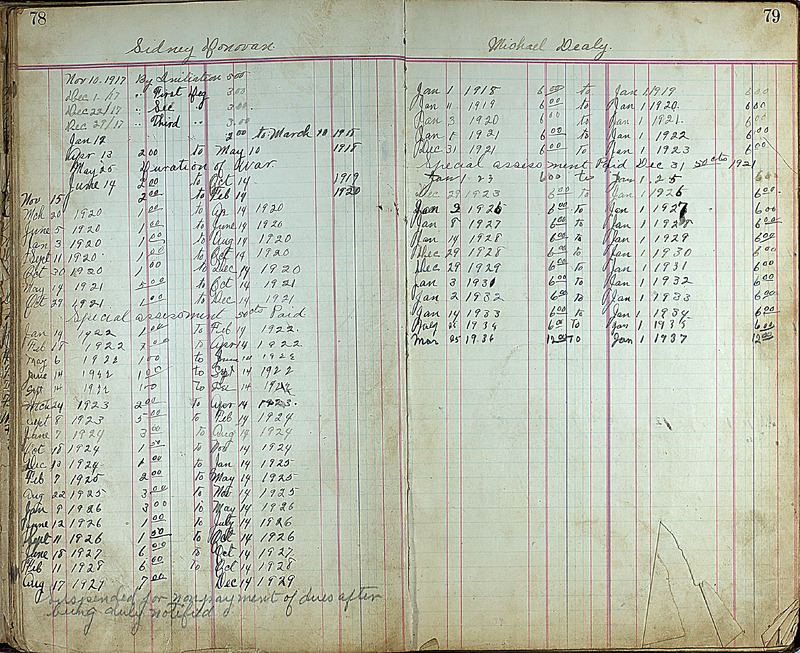 78
Sidney Donovan.
Nov 10. 1917 By Initiation 5 00
Dec 1 - 17 " First Deg 3 00
Dec 22/17 " Sec " 3 00
Dec 29/17 " Third " 3 00
Jan 12 2 00 to March 10 1918
Apr 13 2 00 to May 10 1918
May 25 Duration of War
June 14 2 00 to Oct 14 1919
Nov 15 2 00 to Feb 14 1920
Mch 20 1920 1 00 to Ap 14 1920
June 5 1920 1 00 to June 14 1920
Jan 3 1920 1 00 to Aug 14 1920
Sept 11 1920 1 00 to Oct 14 1920
Oct 30 1920 1 00 to Dec 14 1920
May 14 1921 5 00 to Oct 14 1921
Oct 29 1921 1 00 to Dec 14 1921
Special assessment 50cts Paid
Jan 14 1922 1 00 to Feb 14 1922.
Feb 18 1922 to Apr 14 1922
May 6 1922 1 00 to June 14 1922
June 14 1922 1 00 to Sept 14 1922
Sept 14 1922 1 00 to 14
Mch 24 1923 2 00 to Apr 14 1923.
Sept 8 1923 5 00 to Feb 14 1924
June 7 1924 3 00 to Aug 14 1924
Oct 18 1924 1 50 to Nov 14 1924
Dec 13 1924 1 00 to Jan 14 1925
Feb 7 1925 2 00 to May 14 1925
Aug 22 1925 3 00 to Nov 14 1925
Jan 9 1926 3 00 to May 14 1926
June 12 1926 1 00 to July 14 1926
Sept 11 1926 1 00 to Oct 14 1926
June 18 1927 6 00 to Oct 14 1927
Feb 11 1928 6 00 to Oct 14 1928
Aug 17 1927 7 00 Dec 14 1929
Suspended for non payment of dues after
being duly notified
79
Michael Dealy.
Jan 1 1918 6 00 to Jan 1 1919 6 00
Jan 11 1919 6 00 to Jan 1 1920. 6 00
Jan 3 1920 6 00 to Jan 1 1921. 6 00
Jan 8 1921 6 00 to Jan 1 1922 6 00
Dec 31 1921 6 00 to Jan 1 1923 6 00
Special assessment Paid Dec 31 50cts 1921
Jan 1 - 23 6 00 to Jan 1. 25 6 00
Dec 29 1923 6 00 to Jan 1 1926 6 00.
Jan 2 1926 6 00 to Jan 1 1927 6 00
Jan 8 1927 6 00 to Jan 1 1928 6 00
Jan 14 1928 6 00 to Jan 1 1929 6 00
Dec 29 1928 6 00 to Jan 1 1930 6 00
Dec 29 1929 6 00 to Jan 1 1931 6 00
Jan 3 1931 6 00 to Jan 1 1932 6 00
Jan 2 1932 6 00 to Jan 1 1933 6 00
Jan 14 1933 6 00 to Jan 1 1934 6 00
1934 6 00 to Jan 1 1935 6 00
Mar 25 1936 12 00 TO Jan 1 1937 12 00